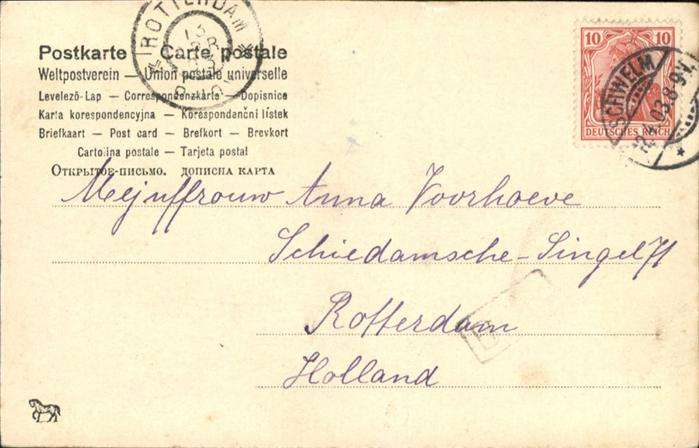 Postkarte — Carte postale
Weltpostverein — Union postale universelle
Levelező-Lap — Correspondenzkarte — Dopisnice
Karta korespondencyjna — Korespondanční lístek
Briefkaart — Post card — Brefkort — Brevkort
Cartolina postale — Tarjeta postal
Открытое-письмо. дописна карта
ROTTERDAM
10 10
DEUTSCHES REICH
SCHWELM
12.4.03.8-9V.
Mejuffrouw Anna Voorhoeve
Schiedamsche-Singel 71
Rotterdam
Holland